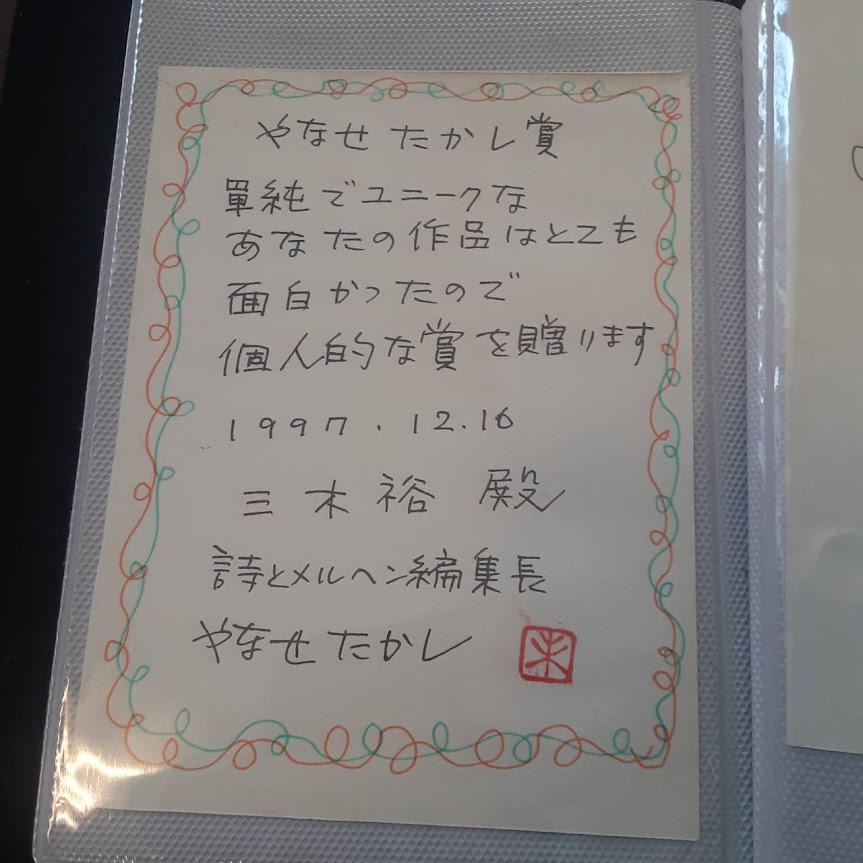 やなせたかし賞
単純でユニークな
あなたの作品はとても
面白かったので
個人的な賞を贈ります
1997.12.16
三木裕 殿
詩とメルヘン編集長
やなせたかし